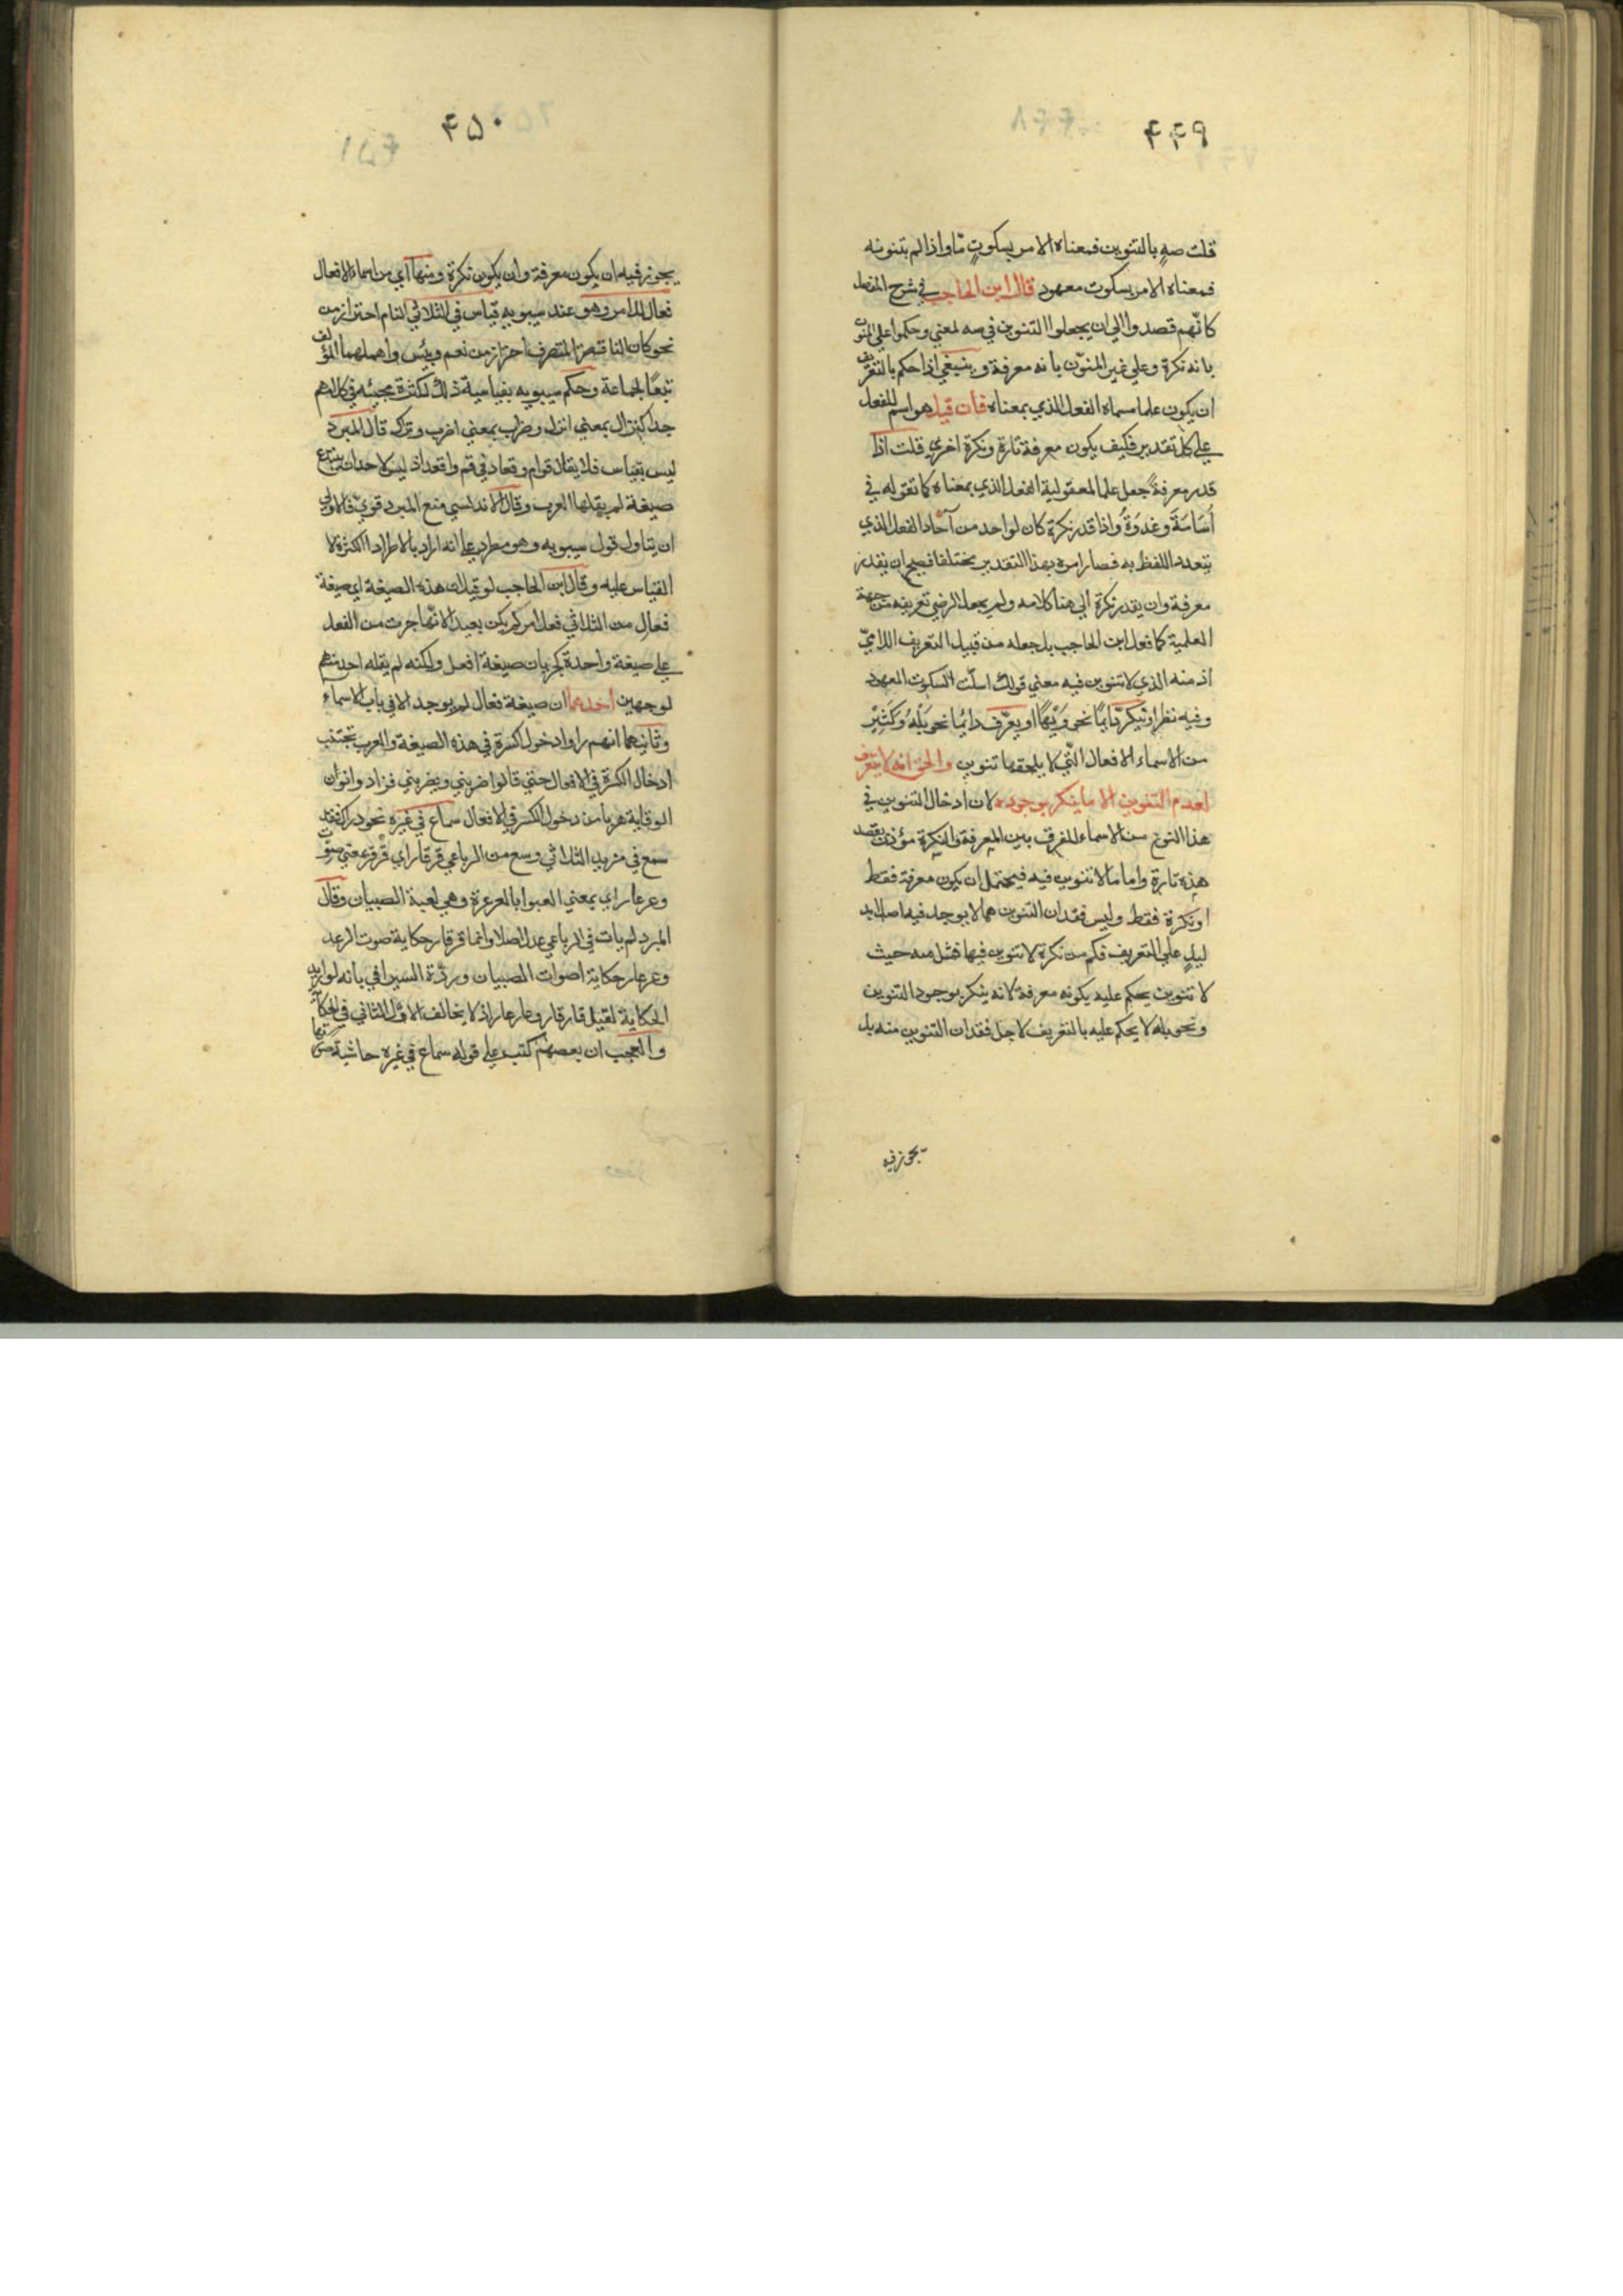 ۴۴۹
قلت صهٍ بالتنوين فمعناه الامر بسكوتٍ مّا واذا لم تنونه
فمعناه الامر بسكوت معهود قال ابن الحاجب في شرح المفصل
كانّهم قصدوا الي ان يجعلوا التنوين في صه لمعني وحكموا علي المنون
بانه نكرة وعلي غير المنوّن بانه معرفة وينبغي اذا حكم بالتعريف
ان يكون علما مسماه الفعل الذي بمعناه فان قيل هو اسم للفعل
علي كل تقدير فكيف يكون معرفة تارة ونكرة اخري قلت اذا
قدر معرفةً جعل علما لمعقولية الفعل الذي بمعناه كما تقوله في
اُسَامَةَ وغدوَةَ واذا قدر نكرة كان لواحد من آحاد الفعل الذي
يتعدد اللفظ به فصار امره بهذا التقدير مختلفا فصح ان يقدر
معرفة وان يقدر نكرة الي هنا كلامه ولم يجعل الرضي تعريفه من جهة
العلمية كما فعل ابن الحاجب بل جعله من قبيل التعريف اللاميّ
اذ صه الذي لا تنوين فيه معني قولك اسكت السكوت المعهود
وفيه نظر او تنكرّ دايمًا نحو وَيْهًا او يعرّف دائما نحو بَلْهُ وكَثِيْر
من الاسماء الافعال الّتي لا يلحقها تنوين والحق انه لا يتعرف
لعدم التنوين الا ما ينكر بوجوده لان ادخال التنوين في
هذا النوع من الاسماء للفرق بين المعرفة والنكرة مؤذن بقصد
هذه تارة واما ما لا تنوين فيه فيحتمل ان يكون معرفة فقط
او نكرة فقط وليس فقدان التنوين مما لا يوجد فيه اصلا بد
ليلٍ علي التعريف فكم من نكرة لا تنوين فيها فمثل صه حيث
لا تنوين يحكم عليه بكونه معرفة لانه ينكر بوجود التنوين
ونحو بله لا يحكم عليه بالتعريف لاجل فقدان التنوين منه بل
يجوز فيه
۴۵۰
يجوز فيه ان يكون معرفة وان يكون نكرة ومنها اي من اسماء الافعال
فعال للامر وهو عند سيبويه قياس في الثلاثي التام احتراز من
نحو كان الناقصة المتصرف احتراز من نعم وبئس واهملهما المؤلف
تبعًا لجماعة وحكم سيبويه بقياسية ذلك لكثرة مجيئه في كلامهم
جدا كنزال بمعني انزل وضراب بمعني اضرب وتراك قال المبرد
ليس بقياس فلا يقال قوام وقعاد في قم واقعد اذ ليس لاحد ان يبتدع
صيغة لم يقلها العرب وقال الاندلسي منع المبرد قويّ فالاولي
ان يتاول قول سيبويه وهو مطرد علي انه اراد بالاطراد الكثرة لا
القياس عليه وقال ابن الحاجب لو قيل ان هذه الصيغة اي صيغة
فعال من الثلاثي فعل امر لم يكن بعيدا لانّها جرت من الفعل
علي صيغة واحدة كجريان صيغة افعل ولكنه لم يقله احد منهم
لوجهين احدهما ان صيغة فعال لم يوجد الا في باب الاسماء
وثانيهما انهم راوا دخول كسرة في هذه الصيغة والعرب تجتنب
ادخال الكسرة في الافعال حتي قالوا ضربني ويضربني فزادوا نون
الوقاية هربا من دخول الكسر في الافعال سماع في غيره نحو دراك فقد
سمع في مزيد الثلاثي وسمع من الرباعي قرقار اي قرقر بمعني صوّت
وعرعار اي بمعني العبوا بالعرعرة وهي لعبة الصبيان وقال
المبرد لم يات في الرباعي عدل اصلا وانما قرقار حكاية صوت الرعد
وعرعار حكاية اصوات الصبيان وردّه السيرافي بانه لو اريد
الحكاية لقيل قار قار وعار عار اذ لا يخالف الاول الثاني في الحكاية
والعجب ان بعضهم كتب علي قوله سماع في غيره حاشية